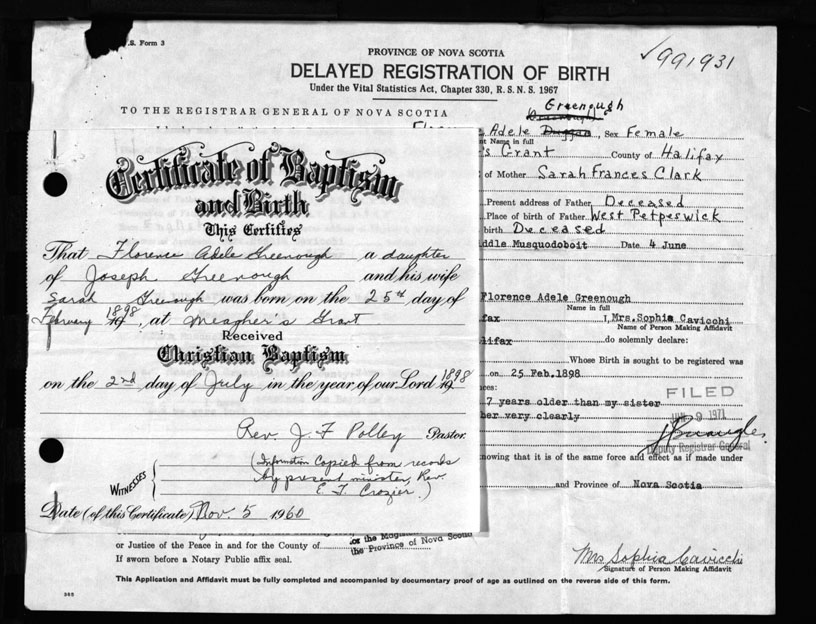 .S. Form 3
PROVINCE OF NOVA SCOTIA
✓991931
DELAYED REGISTRATION OF BIRTH
Under the Vital Statistics Act, Chapter 330, R.S.N.S. 1967
TO THE REGISTRAR GENERAL OF NOVA SCOTIA
Greenough
Greenough
e Adele Duggan, Sex Female
nt Name in full
's Grant County of Halifax
of Mother Sarah Frances Clark
Present address of Father Deceased
Place of birth of Father West Petpeswick
birth Deceased
iddle Musquodoboit Date 4 June
Florence Adele Greenough
Name in full
fax I, Mrs. Sophia Cavicchi
Name of Person Making Affidavit
lifax do solemnly declare:
Whose Birth is sought to be registered was
on 25 Feb. 1898
nces:
7 years older than my sister
her very clearly
FILED
9 1971
Deputy Registrar General
nowing that it is of the same force and effect as if made under
and Province of Nova Scotia
Certificate of Baptism
and Birth
This Certifies
That Florence Adele Greenough a daughter
of Joseph Greenough and his wife
Sarah Greenough was born on the 25th day of
February 1898 19, at Meagher's Grant
Received
Christian Baptism
on the 2nd day of July in the year of our Lord 19 1898
Rev. J. F Polley Pastor
WITNESSES
(Information Copied from records
by present minister, Rev.
E. T. Crozier.)
Date (of this Certificate) Nov. 5 1960
or the Magis
the Province of Nova Scotia
or Justice of the Peace in and for the County of
If sworn before a Notary Public affix seal.
Mrs Sophia Cavicchi
Signature of Person Making Affidavit
This Application and Affidavit must be fully completed and accompanied by documentary proof of age as outlined on the reverse side of this form.